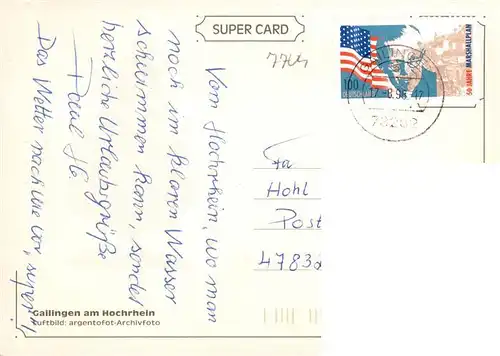 SUPER CARD
Vom Hochrhein, wo man
noch im klaren Wasser
schwimmen kann, sendet
herzliche Urlaubsgrüße
Paul
Das Wetter nach wie vor "super"!
Fa
Hohl
Post
4783
100
DEUTSCHLAND
50 JAHRE MARSHALLPLAN
78262
Gailingen am Hochrhein
Luftbild: argentofot-Archivfoto